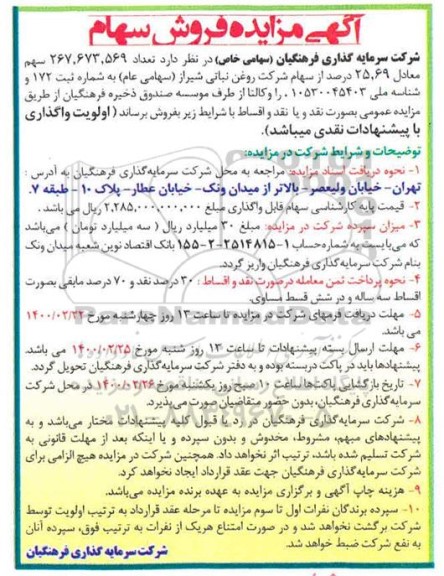 آگهی مزایده فروش سهام
شرکت سرمایه گذاری فرهنگیان (سهامی خاص) در نظر دارد تعداد ۲۶۷,۶۷۳,۵۶۹ سهم
معادل ۲۵,۶۹ درصد از سهام شرکت روغن نباتی شیراز (سهامی عام) به شماره ثبت ۱۷۲ و
شناسه ملی ۱۰۵۳۰۰۴۵۴۰۳ را وکالتا از طرف موسسه صندوق ذخیره فرهنگیان از طریق
مزایده عمومی بصورت نقد و یا نقد و اقساط با شرایط زیر بفروش برساند ( اولویت واگذاری
با پیشنهادات نقدی میباشد).
توضیحات و شرایط شرکت در مزایده:
۱- نحوه دریافت اسناد مزایده: مراجعه به محل شرکت سرمایه‌گذاری فرهنگیان به آدرس :
تهران- خیابان ولیعصر- بالاتر از میدان ونک- خیابان عطار- پلاک ۱۰ - طبقه ۷.
۲- قیمت پایه کارشناسی سهام قابل واگذاری مبلغ ۲,۲۸۵,۰۰۰,۰۰۰,۰۰۰ ریال می باشد .
۳- میزان سپرده شرکت در مزایده: مبلغ ۳۰ میلیارد ریال ( سه میلیارد تومان ) می‌باشد
که می‌بایست به شماره‌حساب ۱-۲۵۱۴۸۱۵-۲-۱۵۵ بانک اقتصاد نوین شعبه میدان ونک
بنام شرکت سرمایه‌گذاری فرهنگیان واریز گردد.
۴- نحوه پرداخت ثمن معامله درصورت نقد و اقساط : ۳۰ درصد نقد و ۷۰ درصد مابقی بصورت
اقساط سه ساله و در شش قسط مساوی.
۵- مهلت دریافت فرمهای شرکت در مزایده تا ساعت ۱۳ روز چهارشنبه مورخ ۱۴۰۰/۰۲/۲۲
می باشد.
۶- مهلت ارسال بسته پیشنهادات تا ساعت ۱۳ روز شنبه مورخ ۱۴۰۰/۰۲/۲۵ می باشد.
پیشنهادها باید در پاکت دربسته بوده و به دفتر شرکت سرمایه‌گذاری فرهنگیان تحویل گردد.
۷- تاریخ بازگشایی پاکت‌ها ساعت ۱۰ صبح روز یکشنبه مورخ ۱۴۰۰/۰۲/۲۶ در محل شرکت
سرمایه‌گذاری فرهنگیان، بدون حضور متقاضیان صورت می‌پذیرد.
۸- شرکت سرمایه‌گذاری فرهنگیان در رد یا قبول کلیه پیشنهادات مختار می‌باشد و به
پیشنهادهای مبهم، مشروط، مخدوش و بدون سپرده و یا اینکه بعد از مهلت قانونی به
شرکت تسلیم شده باشد، ترتیب اثر نخواهد داد. همچنین شرکت در مزایده هیچ الزامی برای
شرکت سرمایه‌گذاری فرهنگیان جهت عقد قرارداد ایجاد نخواهد کرد.
۹- هزینه چاپ آگهی و برگزاری مزایده به عهده برنده مزایده می‌باشد.
۱۰- سپرده برندگان نفرات اول تا سوم مزایده تا مرحله عقد قرارداد به ترتیب اولویت توسط
شرکت برگشت نخواهد شد و در صورت امتناع هریک از نفرات به ترتیب فوق، سپرده آنان
به نفع شرکت ضبط خواهد شد.
شرکت سرمایه گذاری فرهنگیان